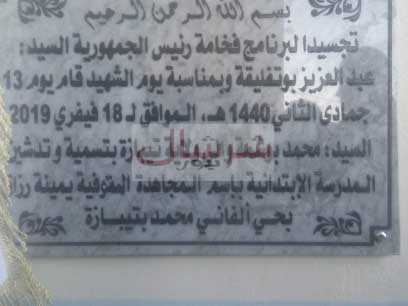 بسم الله الرحمن الرحيم
تجسيدا لبرنامج فخامة رئيس الجمهورية السيد :
عبد العزيز بوتفليقة وبمناسبة يوم الشهيد قام يوم 13
جمادي الثاني 1440 هـ، الموافق لـ 18 فيفري 2019
السيد : محمد تيبازة بتسمية و تدشين
المدرسة الإبتدائية بإسم المجاهدة المتوفية يمينة
بحي ألفاني محمد بتيبازة